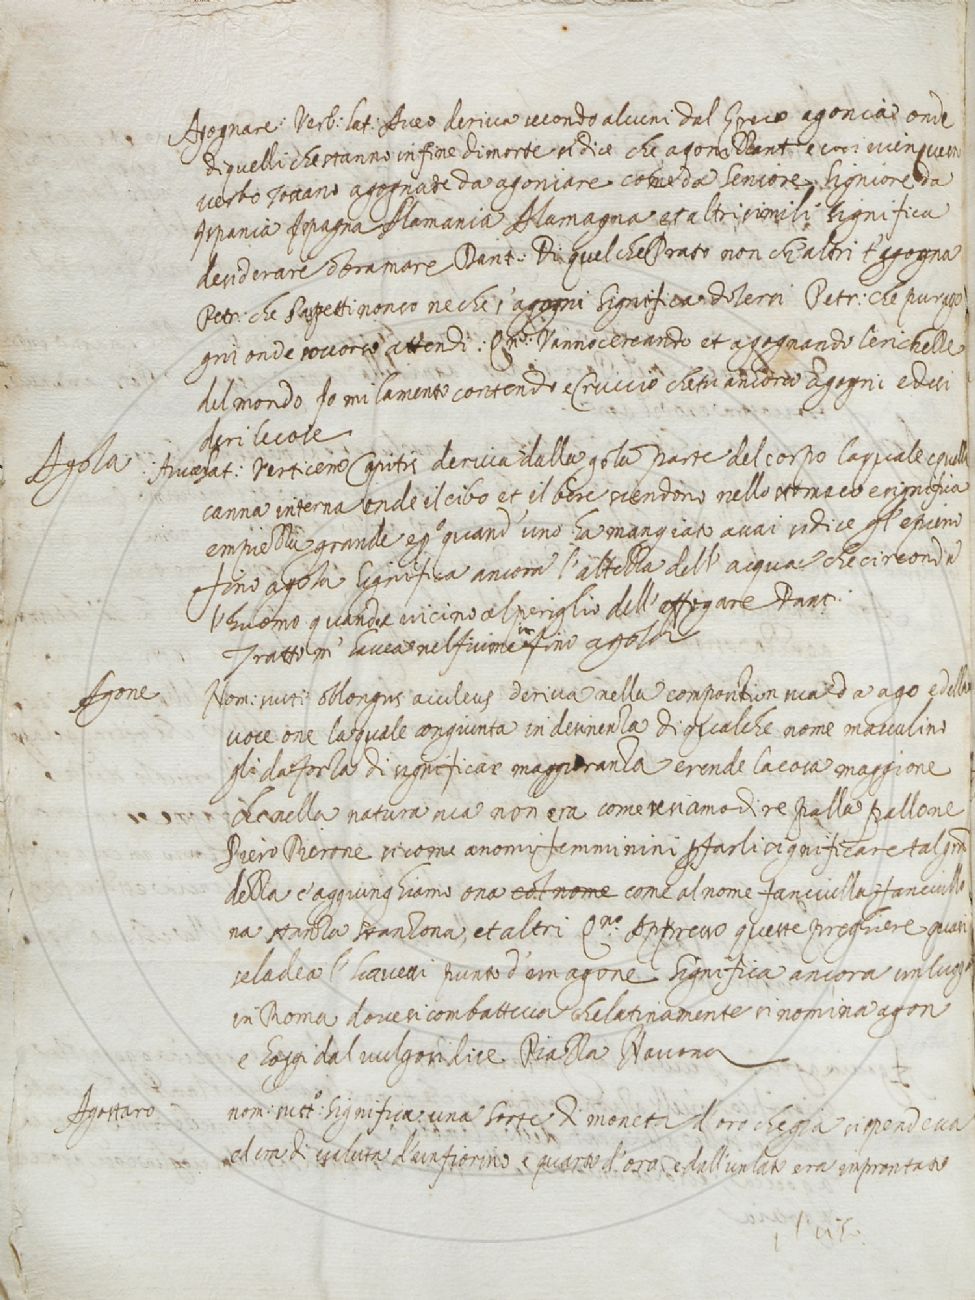 Agognare: Verb: lat: Aveo deriva secondo alcuni dal Greco agonia onde
di quelli che stanno in fine di morte si dice che agonizzant e così vien questo
verbo Toscano agognare da agoniare come da Seniore, Signiore da
Ispania Ispagna Alamania Alamagna et altri simili significa
desiderare ò bramare Dant: Di quel che Prato non ch'altri t'agogna
Petr: che s'aspetti non so ne che s'agogni significa dolersi Petr: che pur ago
gni onde soccorso attendi: Vanno cercando et agognando le richezze
del mondo Io mi lamento contendo e cruccio che tu ancora agogni e desi
deri le cose
Agola Avv: lat: Verticem Capitis deriva dalla gola parte del corpo la quale è quella
canna interna onde il cibo et il bere scendono nello stomaco e significa
empiezza grande e quand' uno ha mangiato assai si dice
fino agola significa ancora l'altezza dell' acqua che circonda
l'huomo quando è vicino al periglio dell' affogare Dant:
Tratto m' havea nel fiume in fino agola
Agone Nom: sust: oblongus aculeus deriva nella compositione sua da ago e dalla
voce one la quale congiunta in desinenza di qualche nome masculino
gli da forza di significar maggioranza e rende la cosa maggiore
che nella natura sua non era come veniamo dire palla pallone
Piero Pierone si come a nomi femminini p farli significare tal gran
dezza s'aggiunghiamo ona col nome come al nome fanciulla fanciullo
na stanza stanzona, et altri Appresso queste preghiere quasi
se la dea l' havessi punto d'un agone significa ancora un luogo
in Roma dove si combatteva che latinamente si nomina agon
e hoggi dal vulgo si dice Piazza Navona
Agostaro nom: sust: significa una sorte di moneta d'oro che già si spendeva
ed era di valuta d'un fiorino e quarto d'oro, e dall' un lato era improntato